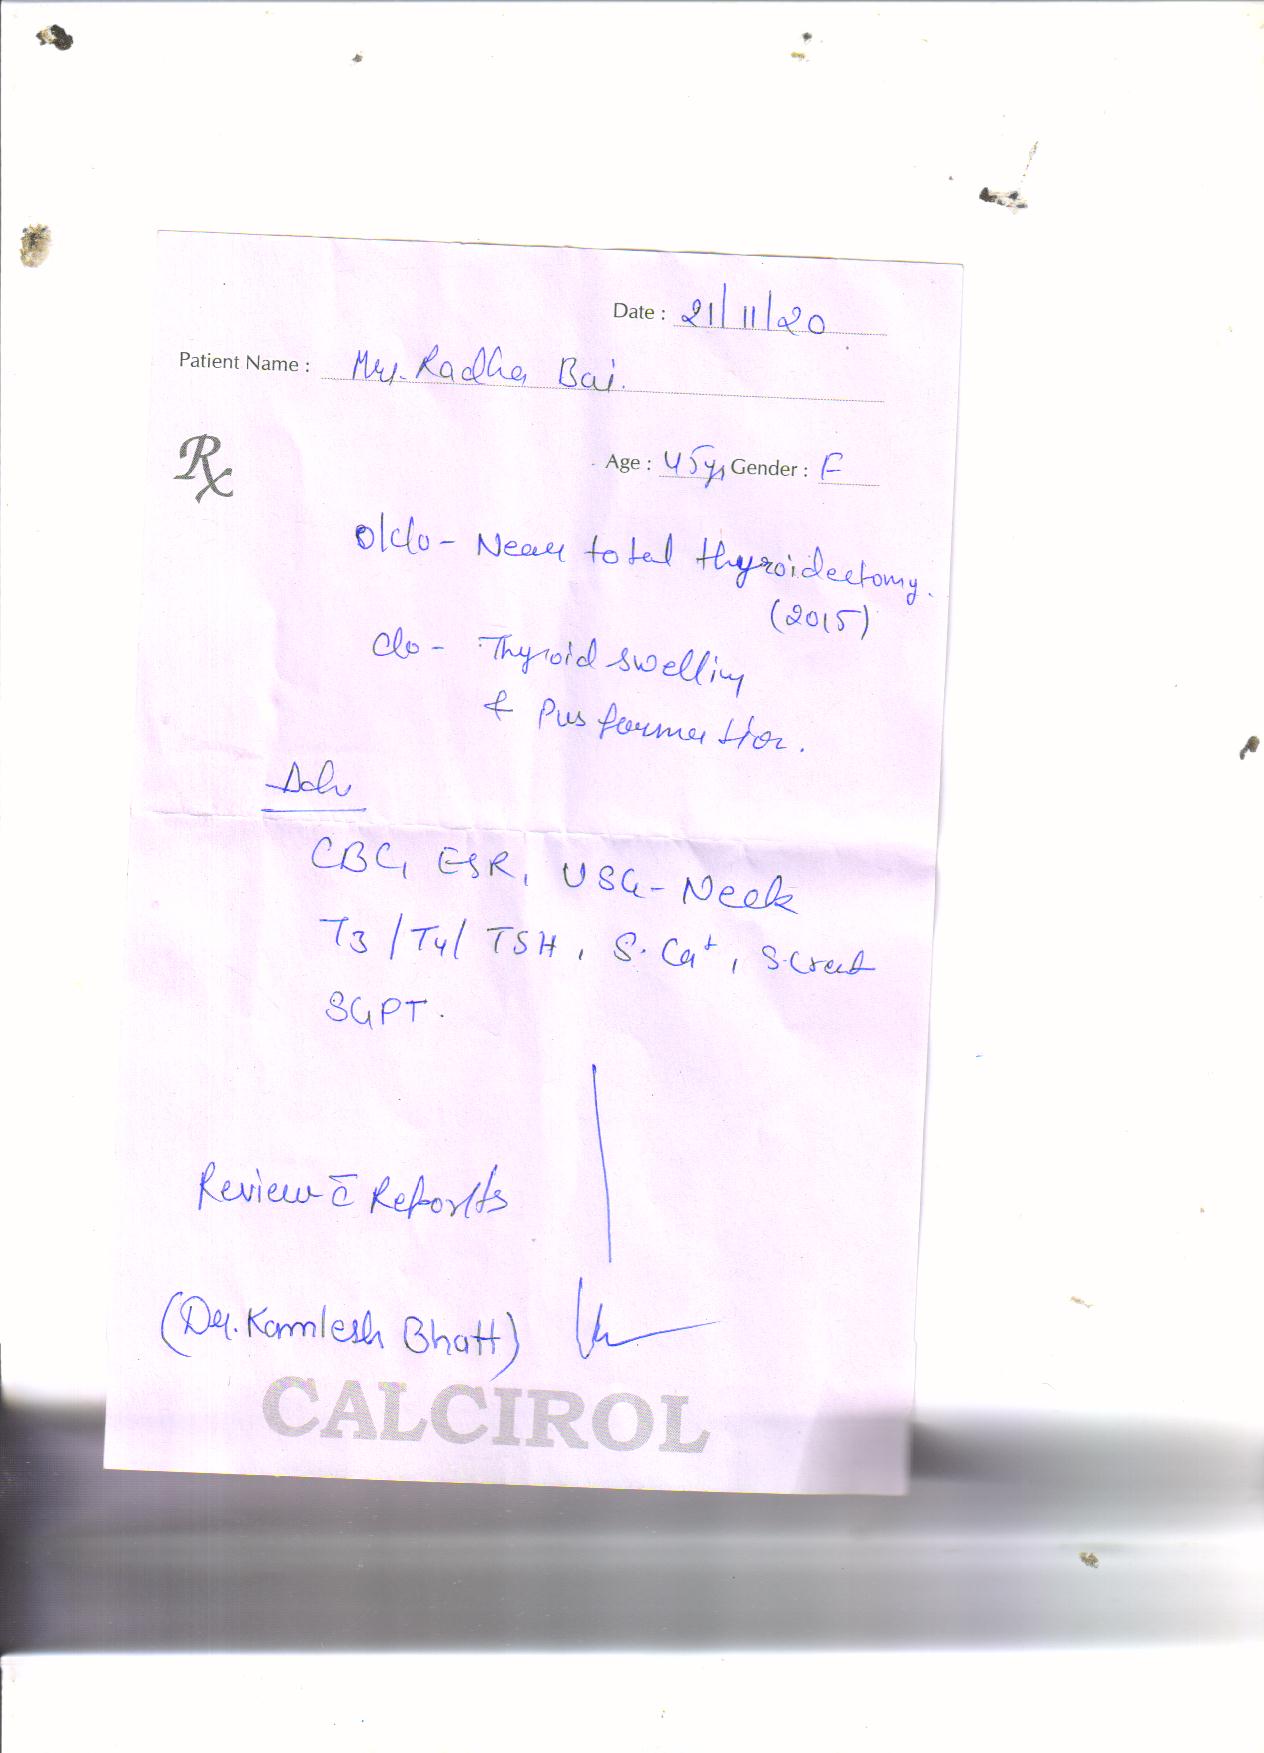 Date : 21/11/20
Patient Name : Mrs. Radha Bai.
Rx
Age : 45yrs Gender : F
O/c/o - Near total thyroidectomy.
(2015)
c/o - Thyroid swelling
& Pus formation.
Adv
CBC, ESR, USG - Neck
T3 / T4 / TSH, S. Ca+, S. Creat
SGPT.
Review c̄ Reports
(Dr. Kamlesh Bhatt)
CALCIROL